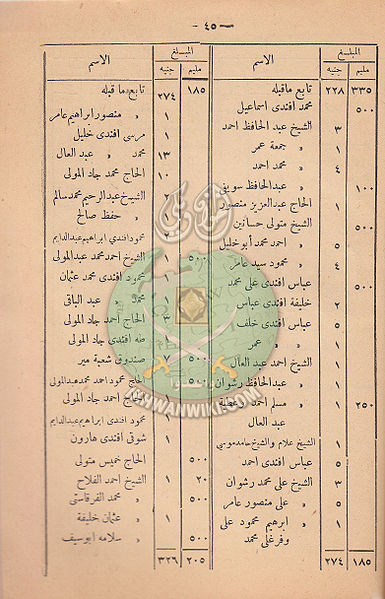 — ٤٥ —
الاسم المبلغ
جنيه مليم
تابع ماقبله ٢٢٨ ٣٣٥
محمد افندى اسماعيل ٥٠٠
الشيخ عبد الحافظ احمد ٣
» جمعة عمر ١
» محمد احمد ٤
» عبدالحافظ سويفى ١٠٠
الحاج عبدالعزيز منصور ١
الشيخ متولى حسانين ٥٠٠
» احمد محمد أبوخليل ٥
» محمود سيد عامر ٤
عباس افندى على محمد ٥٠٠
خليفة افندى عباس ٢
عباس افندى خلف ٥
» » عمر ١
الشيخ احمد عبد العال ١
» عبدالحافظ رشوان
» مسلم احمد عطية ٢٥٠
عبد العال
الشيخ علام والشيخ حامد موسى ١
عباس افندى احمد ٥
الشيخ على محمد رشوان ٣
» على منصور عامر ٥
» ابراهيم محمود على ١
وفرغلى محمد
٢٧٤ ١٨٥
الاسم المبلغ
جنيه مليم
تابع ما قبله ٢٧٤ ١٨٥
» منصور ابراهيم عامر ١
مرسى افندى خليل ١
محمد » عبد العال ١٣
الحاج محمد جاد المولى ١٠
الشيخ عبدالرحيم محمد سالم ٢
» حفظ صالح ١
محمود افندى ابراهيم عبدالدايم ٢
الشيخ احمد محمد عبدالمولى ٥٠٠
محمود افندى محمد عثمان
محمد » عبد الباقى ١
الحاج احمد جاد المولى ٣
طه افندى جاد المولى
صندوق شعبة مير ٧ ٥٠٠
الحاج محمود احمد محمد عبدالمولى ٥٠٠
الحاج احمد جاد المولى
محمود افندى ابراهيم عبدالدايم
شوقى افندى هارون ١
الحاج خميس متولى ٥٠٠
الشيخ احمد الفلاح ١ ٢٠
» محمد القرقاستى ٥٠٠
» عثمان خليفة ١
» سلامه ابوسيف ٥٠٠
٣٢٦ ٢٠٥
IKHWANWIKI.COM